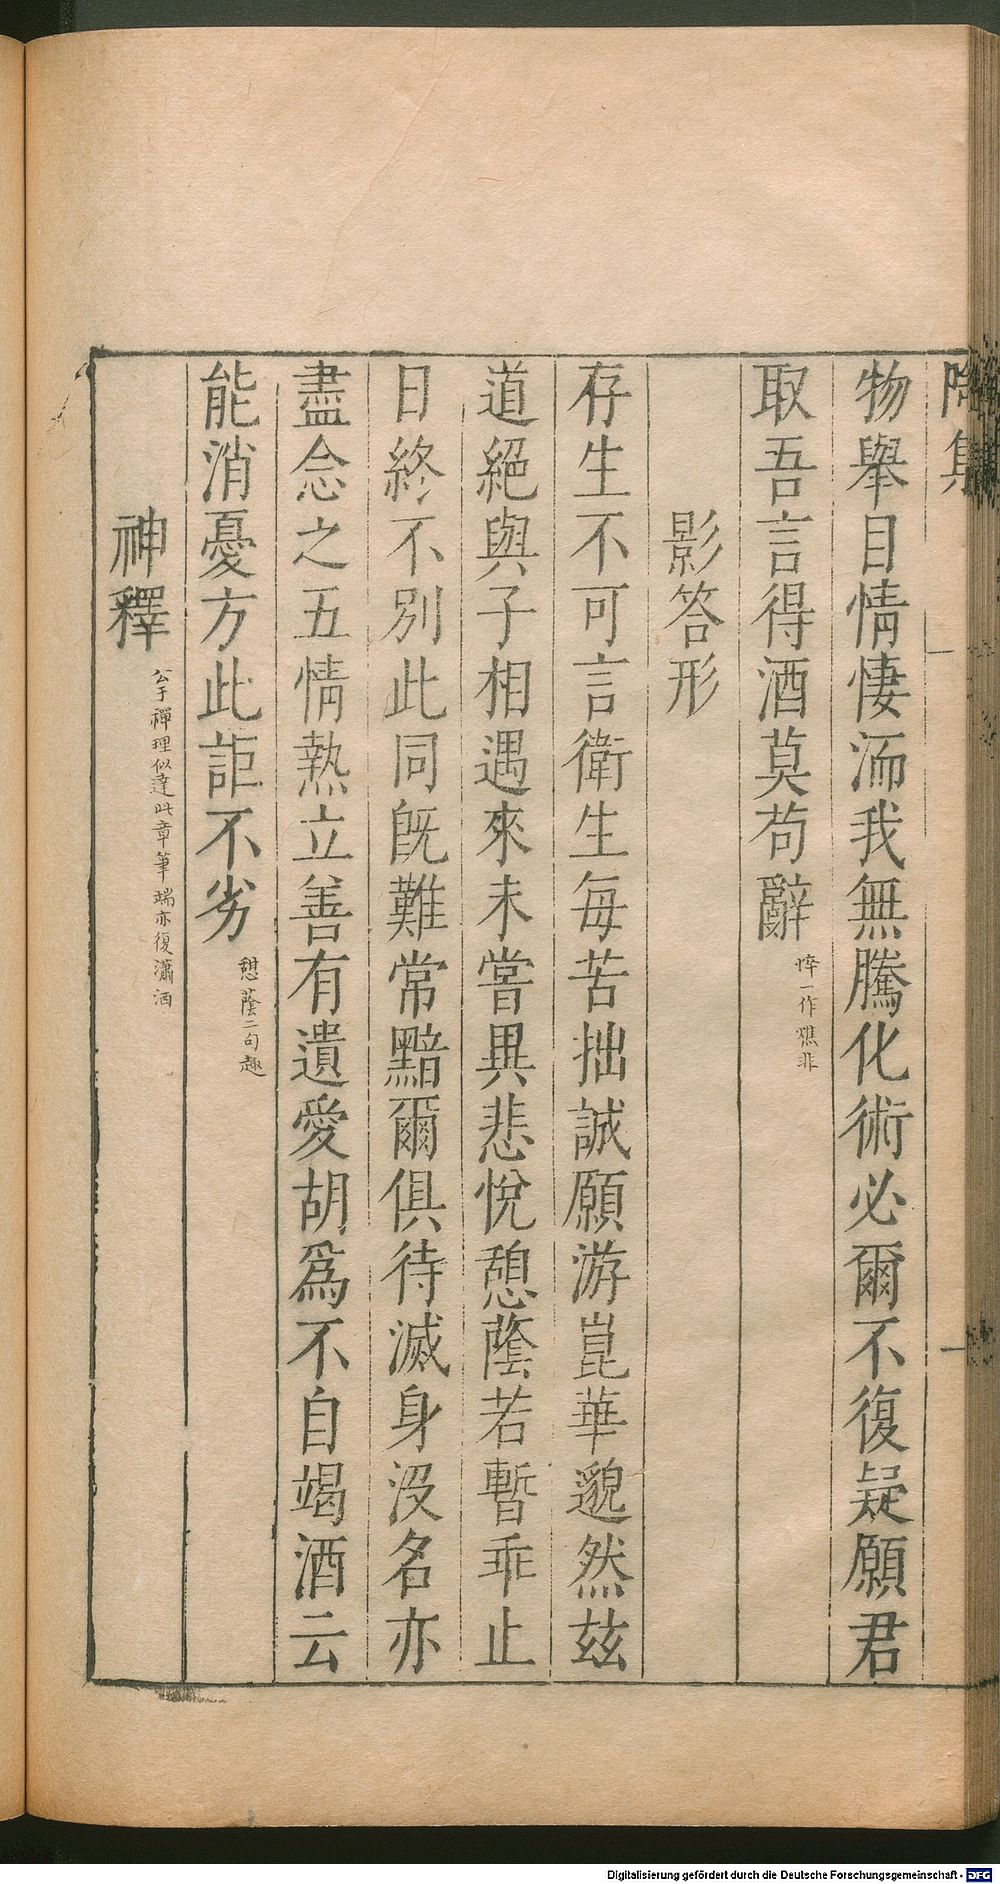 陶集
物舉目情悽洏我無騰化術必爾不復疑願君
取吾言得酒莫苟辭
悴一作憔非
影答形
存生不可言衛生每苦拙誠願游崑華邈然茲
道絕與子相遇來未嘗異悲悅憩蔭若暫乖止
日終不別此同旣難常黯爾俱待滅身沒名亦
盡念之五情熱立善有遺愛胡爲不自竭酒云
能消憂方此詎不劣
憩蔭二句趣
神釋
公于禪理似達此章筆端亦復瀟洒
Digitalisierung gefördert durch die Deutsche Forschungsgemeinschaft - DFG